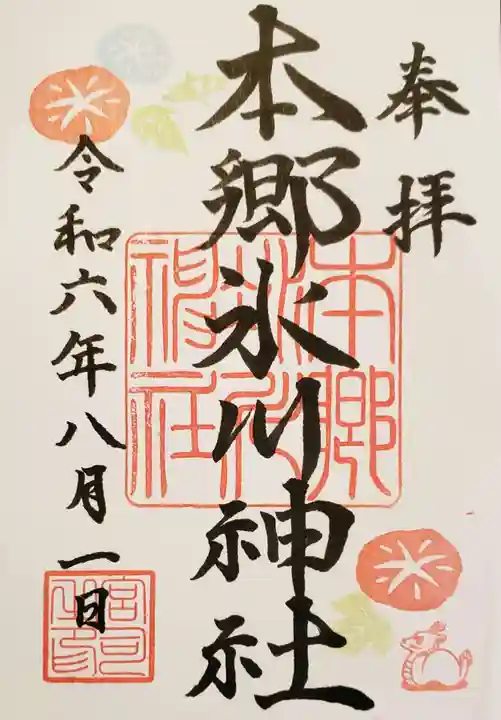 奉拝
本郷氷川神社
令和六年八月一日
本郷
氷川
神社
宮司
之印